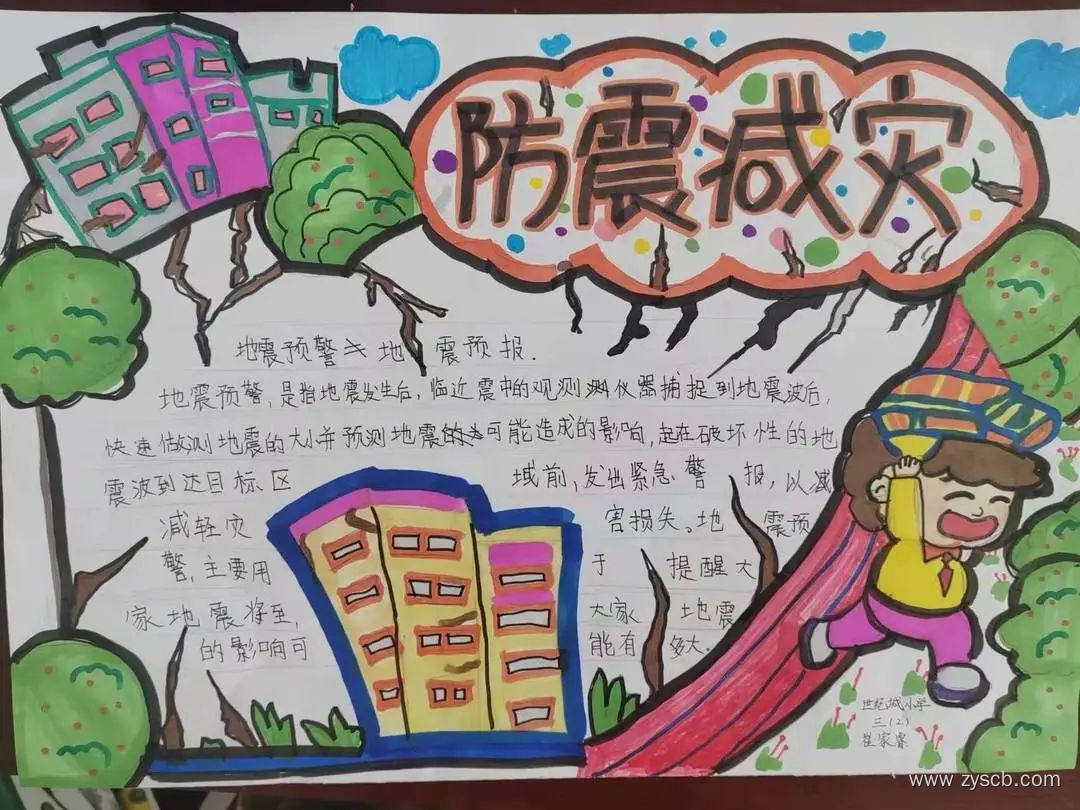 防震减灾
地震预警与地震预报.
地震预警,是指地震发生后,临近震中的观测仪器捕捉到地震波后,
快速做测地震的大小并预测地震的可能造成的影响,赶在破坏性的地
震波到达目标区域前,发出紧急警报,以减
减轻灾害损失。地震预
警,主要用于提醒大
家地震将至,大家地震
的影响可能有多大.
世纪城小学
三(2)
崔家睿
www.zyscb.com